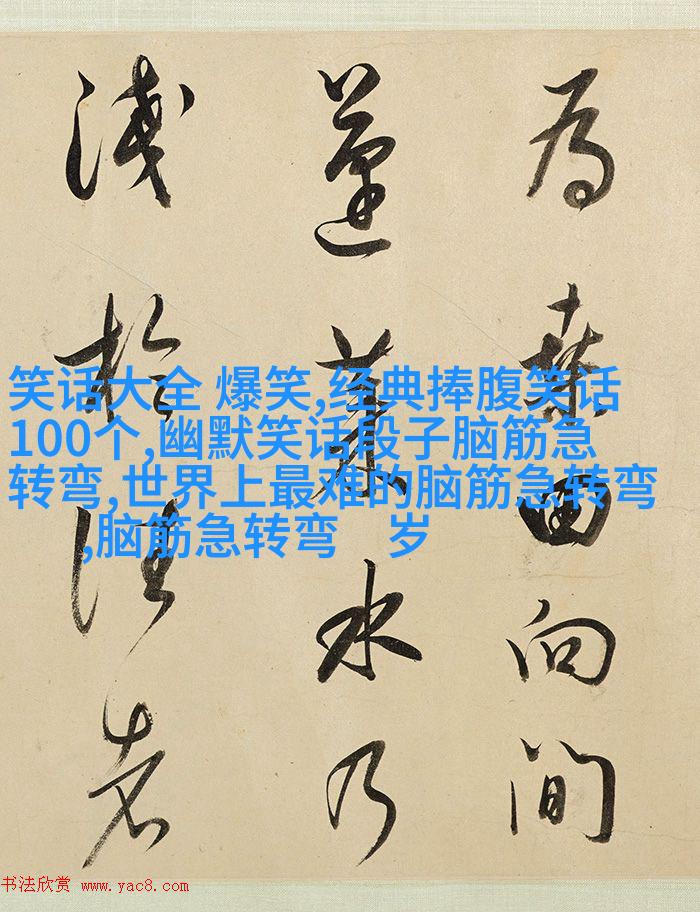 為桑田向間
蓬萊水乃
淺於往者
笑话大全 爆笑,经典捧腹笑话
100个,幽默笑话段子脑筋急
转弯,世界上最难的脑筋急转弯
,脑筋急转弯　岁
书法欣赏 www.yac8.com